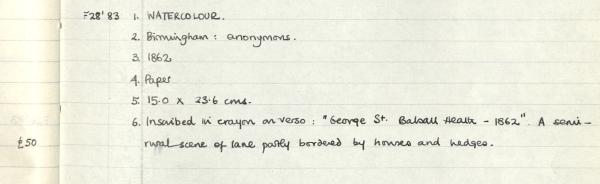 F28'83 1. WATERCOLOUR.
2. Birmingham: anonymous.
3. 1862
4. Paper
5. 15.0 x 23.6 cms.
6. Inscribed in crayon on verso: "George St. Balsall Heath - 1862". A semi-
£50 rural scene of lane partly bordered by houses and hedges.